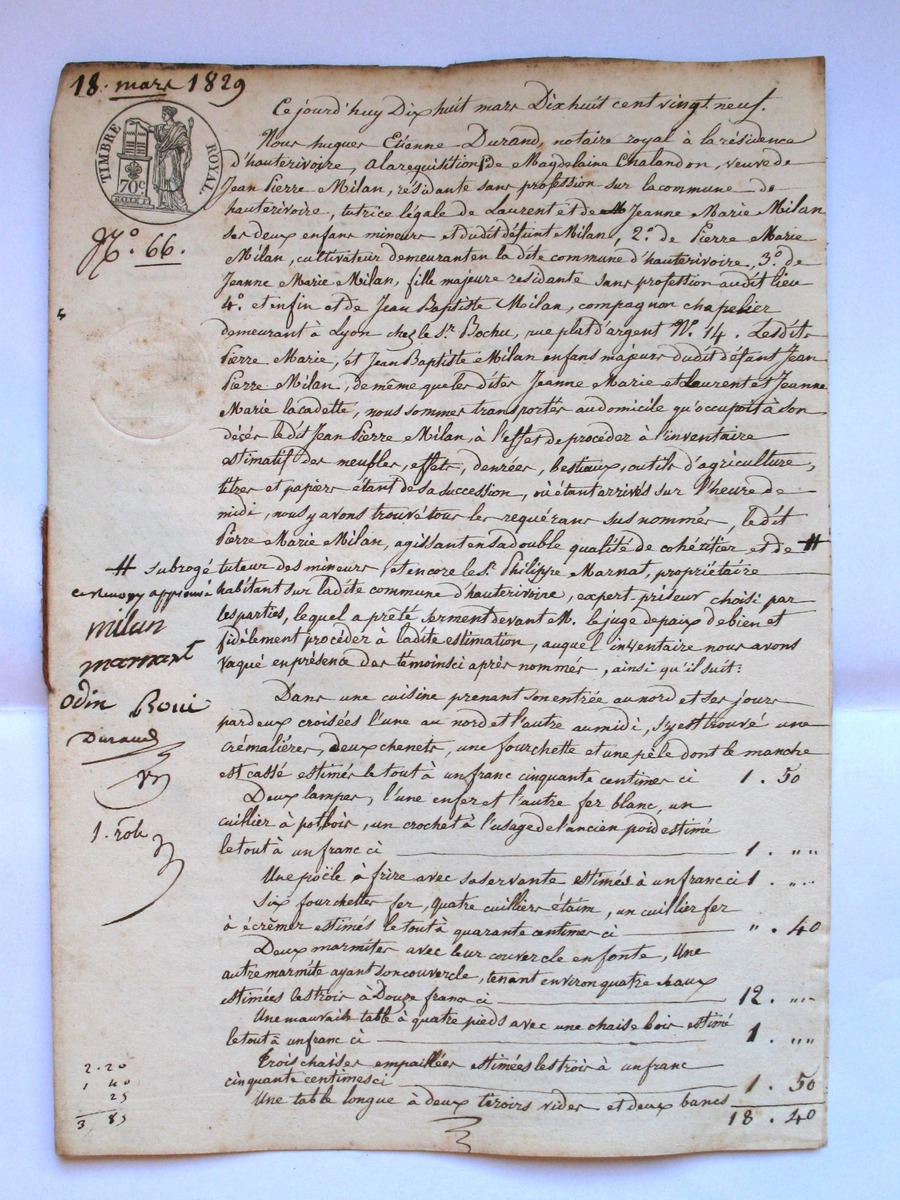 18. mars 1829
TIMBRE ROYAL
70 c.
N.º 66.
Ce jourd'huy Dix huit mars Dix huit cent vingt neuf.
Nous hugues Etienne Durand, notaire royal à la résidence
d'hauterivoire, à la requisition 1.º de Magdelaine Chalandon, veuve de
Jean Pierre Milan, résidante sans profession sur la commune de
hauterivoire, tutrice légale de Laurent et de Jeanne Marie Milan
ses deux enfans mineurs et dudit défunt Milan, 2.º de Pierre Marie
Milan, cultivateur demeurant en la dite commune d'hauterivoire, 3.º de
Jeanne Marie Milan, fille majeure residante sans profession audit lieu
4.º et enfin et de Jean Baptiste Milan, compagnon chapelier
demeurant à Lyon chez le S.r Bochu, rue plat d'argent N.º 14. Lesdits
Pierre Marie, et Jean Baptiste Milan enfans majeurs dudit défunt Jean
Pierre Milan, de même que les dites Jeanne Marie et Laurent et Jeanne
Marie la cadette, nous sommes transportés au domicile qu'occupoit à son
décés le dit Jean Pierre Milan, à l'effet de procéder à l'inventaire
estimatif des meubles, effets, denrées, bestiaux, outils d'agriculture,
titres et papiers étant de sa succession, où étant arrivés sur l'heure de
midi, nous y avons trouvé tous les requérans sus nommés, le dit
Pierre Marie Milan, agissant en sa double qualité de cohéritier et de #
tuteur des mineurs, et encore le S.r Philippe Marnat, propriétaire
habitant sur la dite commune d'hauterivoire, expert-priseur choisi par
les parties, lequel a prêté serment devant M. le juge de paix de bien et
fidèlement procéder à ladite estimation, auquel inventaire nous avons
vaqué en présence des témoins ci après nommés, ainsi qu'il suit:
# subrogé
approuvé
milan
marnat
odin
Durand
1. rôle
Dans une cuisine prenant son entrée au nord et ses jours
par deux croisées l'une au nord et l'autre au midi, s'y est trouvé une
crémalières, deux chenets, une fourchette et une pèle dont le manche
est cassé estimés le tout à un franc cinquante centimes ci 1. 50
Deux lampes, l'une en fer et l'autre fer blanc, un
cuillier à pot bois, un crochet à l'usage de l'ancien poid estimé
le tout à un franc ci 1. " "
Une poële à frire avec sa servante estimés à un franc ci 1. " "
Six fourchettes fer, quatre cuilliers étaim, un cuillier fer
à écrêmer estimés le tout à quarante centimes ci ". 40
Deux marmites avec leur couvercle en fonte, Une
autre marmite ayant son couvercle, tenant environ quatre seaux
estimées les trois à Douze francs ci 12. " "
Une mauvaise table à quatre pieds avec une chaise bois estimé
le tout à un franc ci 1. " "
Trois chaises empaillées estimées les trois à un franc
cinquante centimes ci 1. 50
Une table longue à deux tiroirs vides et deux bancs
18. 40
2. 20
1 40
25
3 85